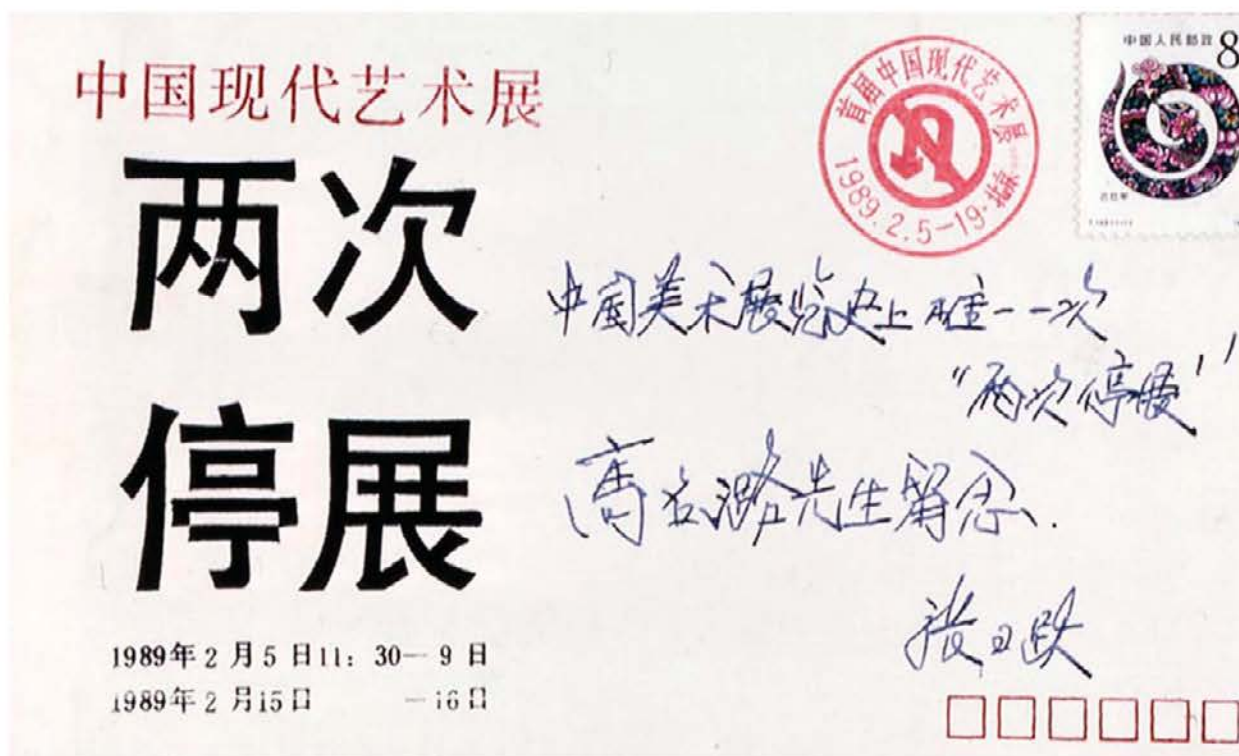 中国现代艺术展
两次
停展
1989年2月5日11：30—9日
1989年2月15日 —16日
首届中国现代艺术展
1989.2.5-19·北京
中国人民邮政 8
中国美术展览史上唯一一次
“两次停展”
高名潞先生留念.